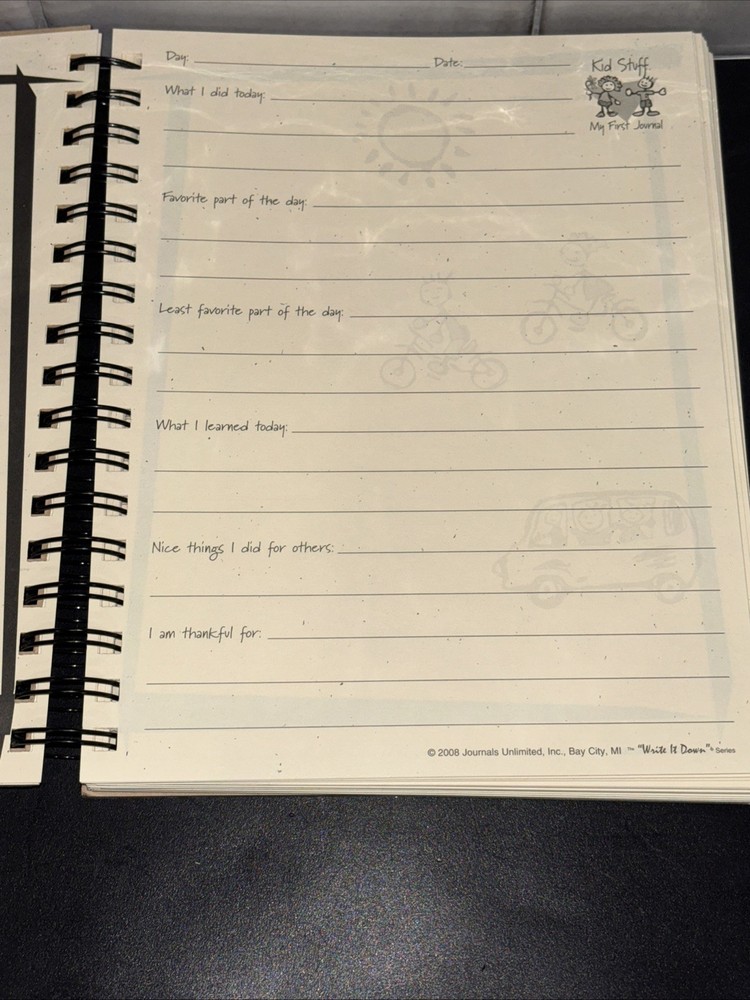 Day: Date:
Kid Stuff
What I did today:
My First Journal
Favorite part of the day:
Least favorite part of the day:
What I learned today:
Nice things I did for others:
I am thankful for:
© 2008 Journals Unlimited, Inc., Bay City, MI ™ "Write It Down"® Series